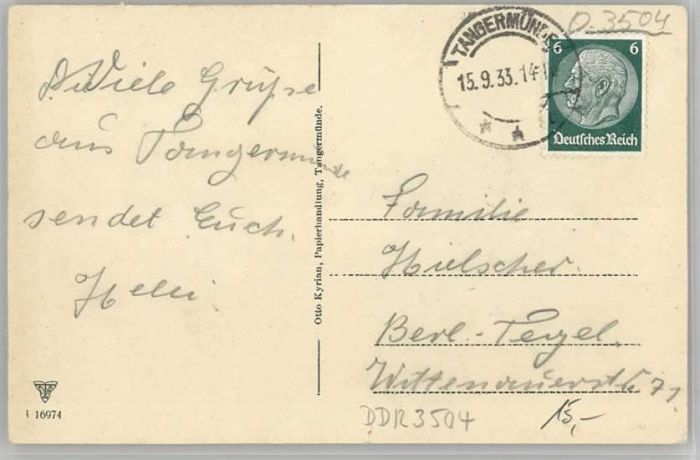 D. Viele Grüße
aus Tangermünde
sendet Euch.
Heli.
i 16974
Otto Kyrian, Papierhandlung, Tangermünde.
TANGERMÜNDE
15.9.33.14
D-3504
6 6
Deutsches Reich
Familie
Hielscher.
Berl.-Tegel.
Wittenauerstr. 71
DDR3504
15,-